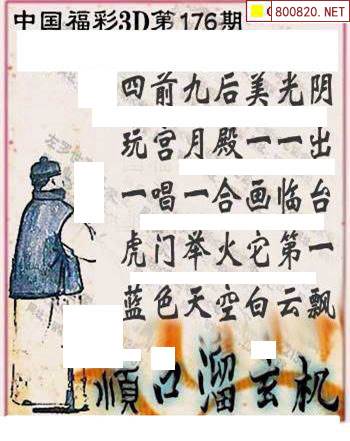 中国福彩3D第176期
800820.NET
四前九后美光阴
玩宫月殿一一出
一唱一合画临台
虎门举火它第一
蓝色天空白云飘
順口溜玄机